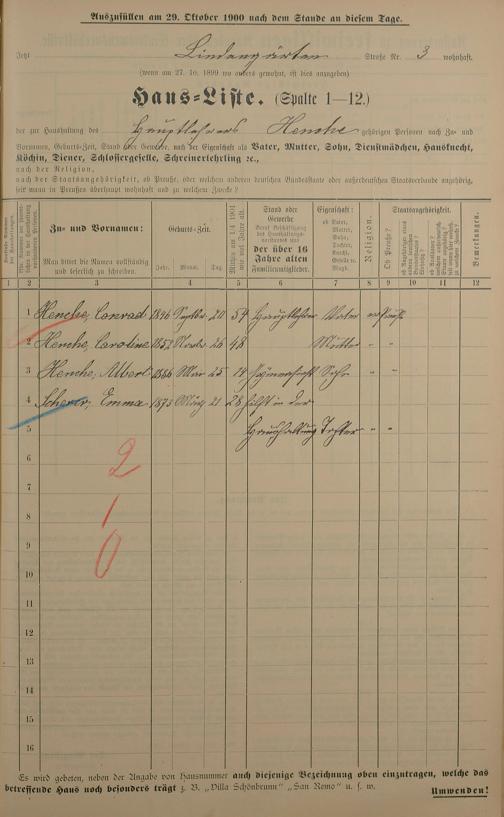 Auszufüllen am 29. Oktober 1900 nach dem Stande an diesem Tage.
Jetzt Lindengärten Straße Nr. 3 wohnhaft.
(wenn am 27. 10. 1899 wo anders gewohnt, ist dies anzugeben)
Haus-Liste. (Spalte 1—12.)
der zur Haushaltung des Hauptlehrers Henche gehörigen Personen nach Zu- und
Vornamen, Geburts-Zeit, Stand oder Gewerbe, nach der Eigenschaft als Vater, Mutter, Sohn, Dienstmädchen, Hausknecht,
Köchin, Diener, Schlossergeselle, Schreinerlehrling ⁊c.,
nach der Religion,
nach der Staatsangehörigkeit, ob Preuße, oder welchem anderen deutschen Bundesstaate oder außerdeutschen Staatsverbande angehörig,
seit wann in Preußen überhaupt wohnhaft und zu welchem Zwecke?
Zu- und Vornamen:
Man bittet die Namen vollständig und leserlich zu schreiben.
Geburts-Zeit.
Jahr. Monat. Tag.
Mithin am 1/4 1901 wie viel Jahre alt.
Stand oder Gewerbe
der über 16 Jahre alten Familienmitglieder.
Eigenschaft:
ob Vater, Mutter, Sohn, Tochter, Knecht, Geselle u. Magd.
Religion.
Staatsangehörigkeit.
Ob Preuße?
Bemerkungen.
1 2 3 4 5 6 7 8 9 10 11 12
1 Henche, Conrad 1846 Septbr. 20 54 Hauptlehrer Vater
2 Henche, Caroline 1852 26 48 Mutter " "
3 Henche, Albert 1886 Mai 25 14 Sohn " "
4 Emma 1873 März 21 28 hilft in der
5 Haushaltung Tochter " "
6 2
7
8 1
9 0
10
11
12
13
14
15
16
Es wird gebeten, neben der Angabe von Hausnummer auch diejenige Bezeichnung oben einzutragen, welche das
betreffende Haus noch besonders trägt z. B. „Villa Schönbrunn" „San Remo" u. s. w.
Umwenden!